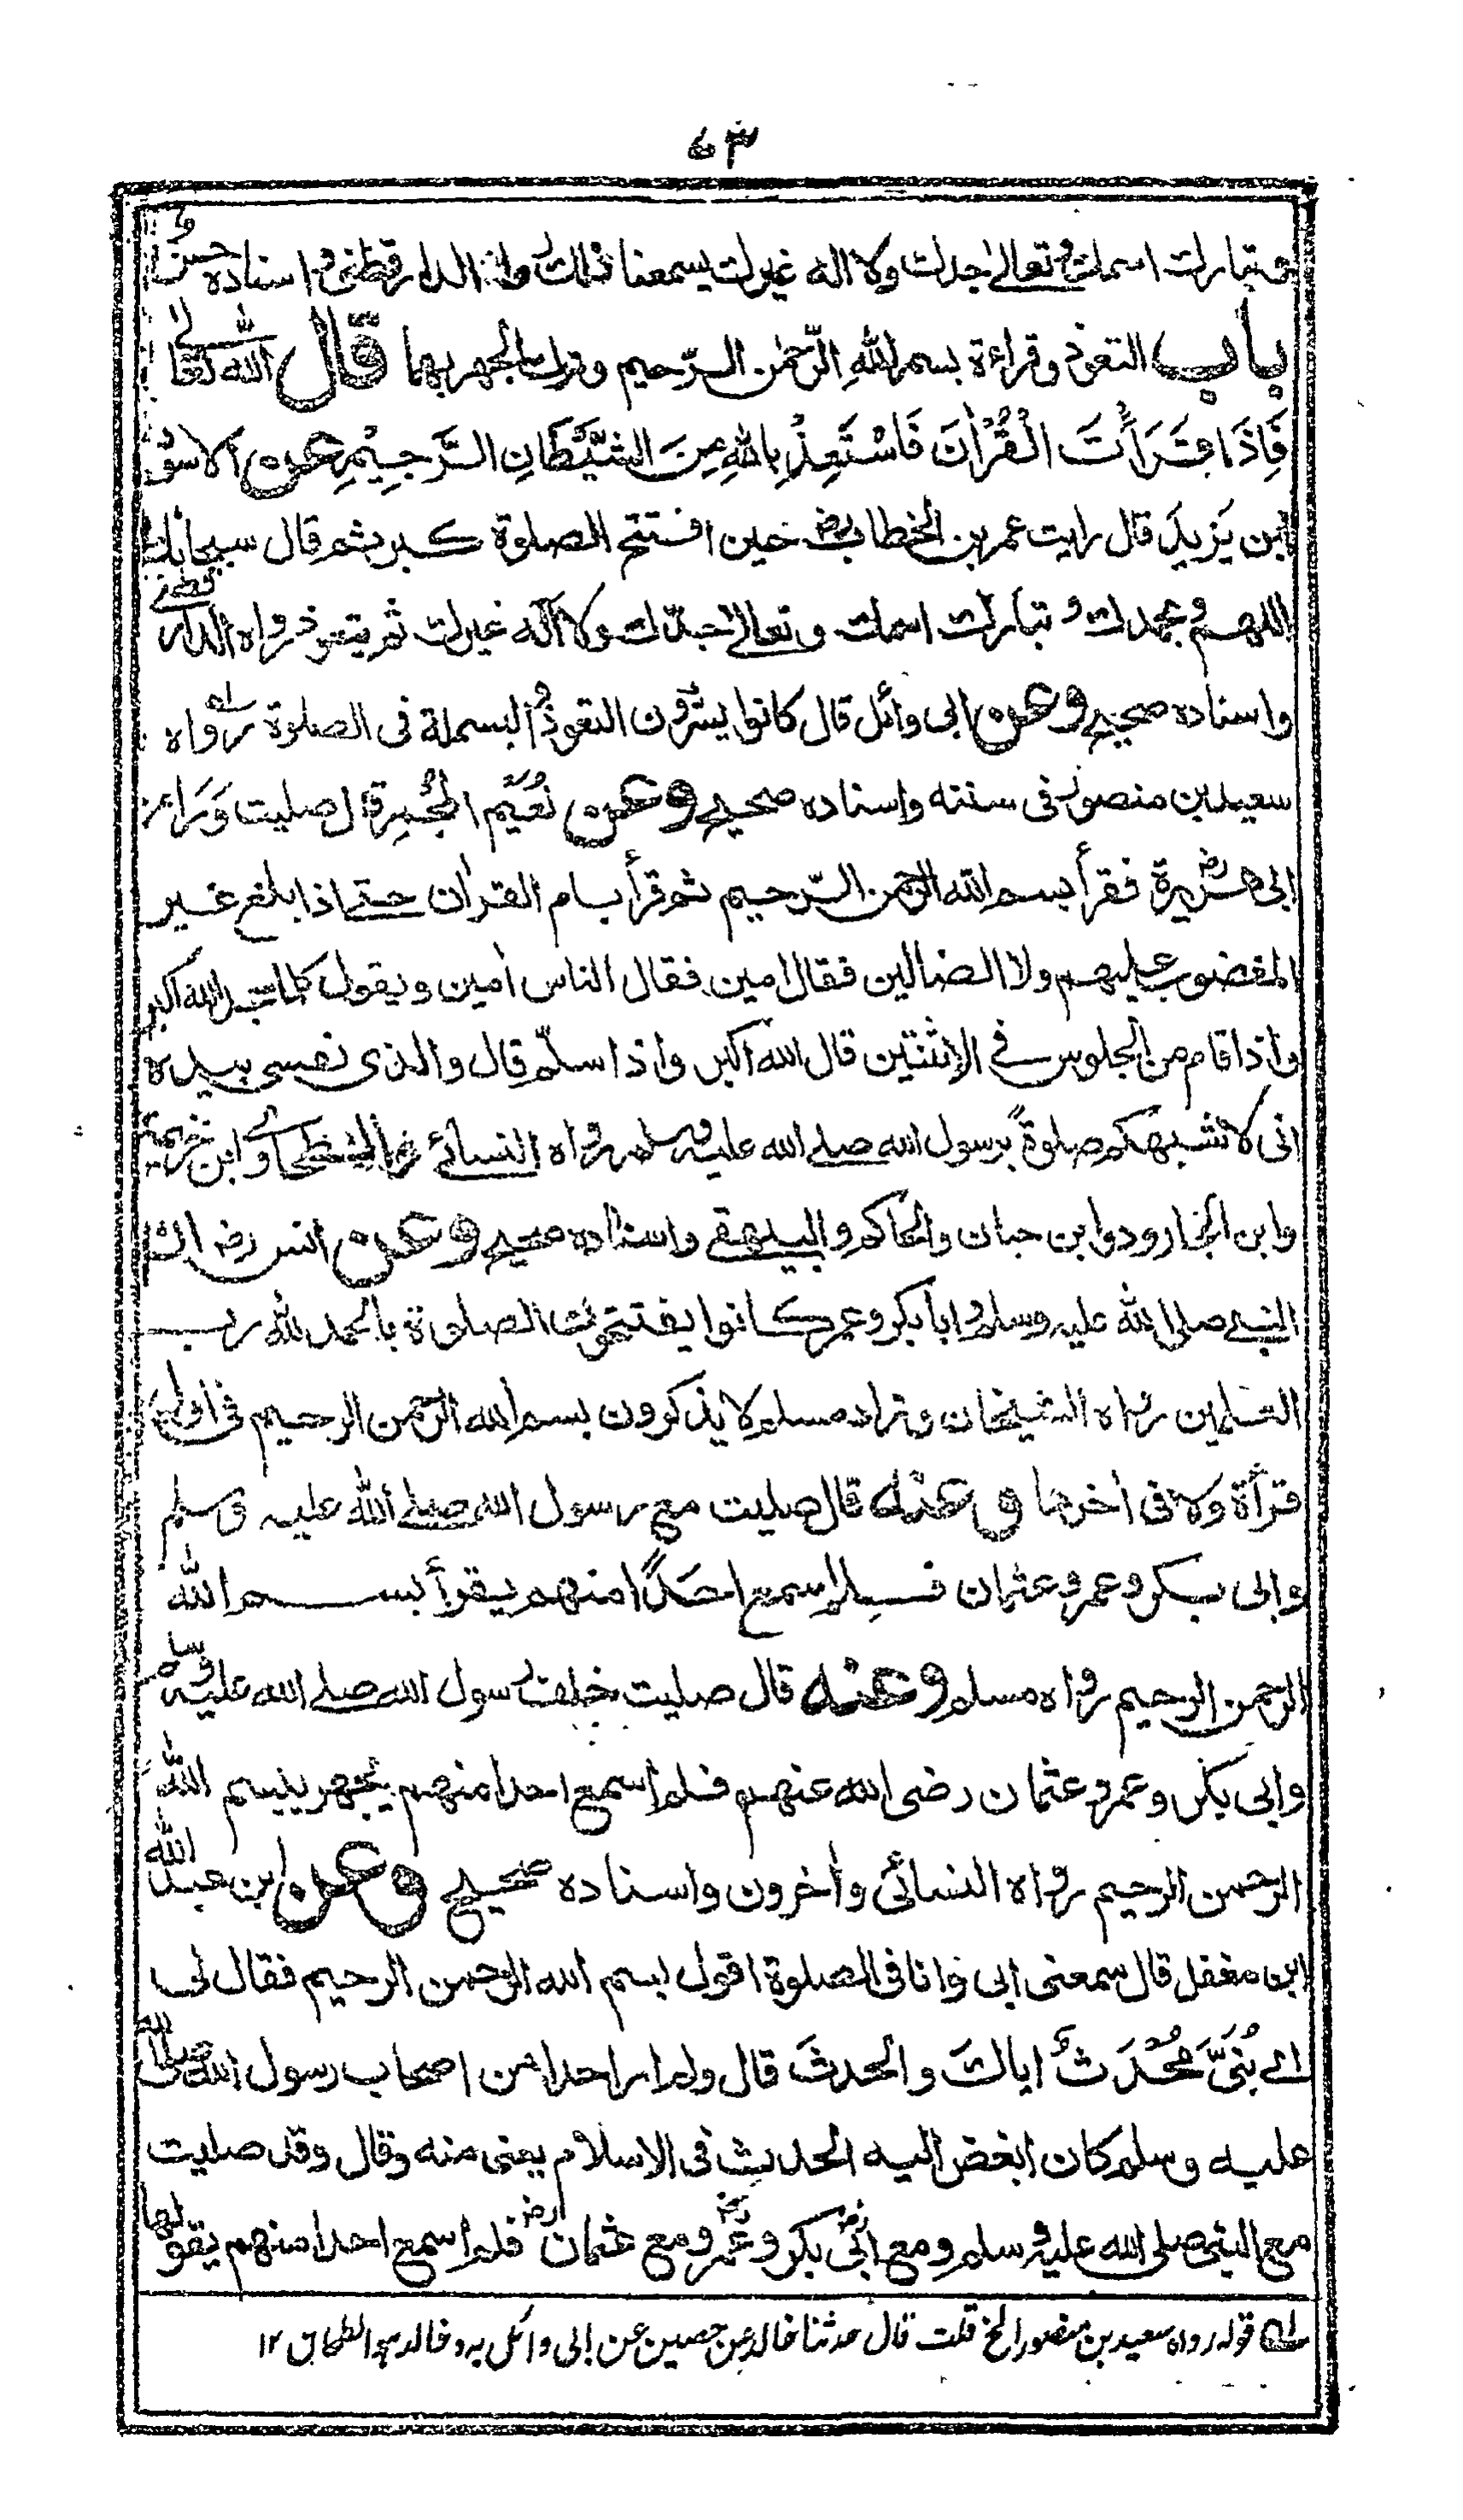 ٧٣
وتبارك اسمك وتعالى جدك ولا اله غيرك يسمعنا ذلك رواه الدارقطنى واسناده حسن و
باب التعوذ وقراءة بسم اللهِ الرّحمٰن الرّحيم وترك الجهر بهما قَال الله تعالىٰ
فَاِذَا قَرَأْتَ الْقُرْاٰنَ فَاسْتَعِذْ بِاللّٰهِ مِنَ الشَّيْطَانِ الرَّجِيْمِ عن الاسود
ابن يَزِيدَ قال رايت عمر بن الخطاب رض حين افتتح الصلوة كبر ثم قال سبحانك
اللهم وبحمدك وتبارك اسمك وتعالىٰ جدّك ولا اله غيرك ثم يتعوذ رواه الدارقطنے
واسناده صحيح وعن ابى وائل قال كانوا يسرّون التعوذ والبسملة فى الصلوة رواه
سعيد بن منصور فى سننه واسناده صحيح وعن نُعَيْم المُجْمِر قال صليت وَرَاء
ابى هريرة رض فقرأ بسم الله الرحمن الرّحيم ثم قرأ بام القران حتے اذا بلغ غير
المغضوب عليهم ولا الضالين فقال امين فقال الناس امين ويقول كلما سجد الله اكبر
واذا قام من الجلوس فى الاثنتين قال الله اكبر واذا سلّم قال والذى نفسى بيده
انى لاشبهكم صلوةً برسول الله صلے الله عليه وسلم رواه النسائے والطحاوى وابن خزيمة
وابن الجارود وابن حبان والحاكم والبيهقے واسناده صحيح وعن انس رض ان
النبے صلى الله عليه وسلم وابا بكر وعمر كانوا يفتتحون الصلوة بالحمد لله رب
العٰلمين رواه الشيخان وزاد مسلم لا يذكرون بسم الله الرحمن الرحيم فى اول
قرأة ولا فى اخرها وعنه قال صليت مع رسول الله صلے الله عليه وسلم
وابى بكر وعمر وعثمان فلم اسمع احدًا منهم يقرأ بسم الله
الرحمن الرحيم رواه مسلم وعنه قال صليت خلف رسول الله صلے الله عليه وسلم
وابى بكر وعمر وعثمان رضى الله عنهم فلم اسمع احدا منهم يجهر ببسم الله
الرحمن الرحيم رواه النسائى واٰخرون واسناده صحيح وعن ابن عبد الله
ابن مغفل قال سمعنى ابى وانا فى الصلوة اقول بسم الله الرحمن الرحيم فقال لى
اے بُنَىَّ مُحْدَثٌ اياك والحدثَ قال ولم ار احدا من اصحاب رسول الله صلى الله
عليه وسلم كان ابغض اليه الحدث فى الاسلام يعنى منه وقال وقد صليت
مع النبى صلى الله عليه وسلم ومع ابى بكر رض وعمر رض ومع عثمان رض فلم اسمع احدا منهم يقولها
لـه قوله رواه سعيد بن منصور الخ قلت قال حدثنا خالد عن حصين عن ابى وائل به وخالد هو الطحان ١٢